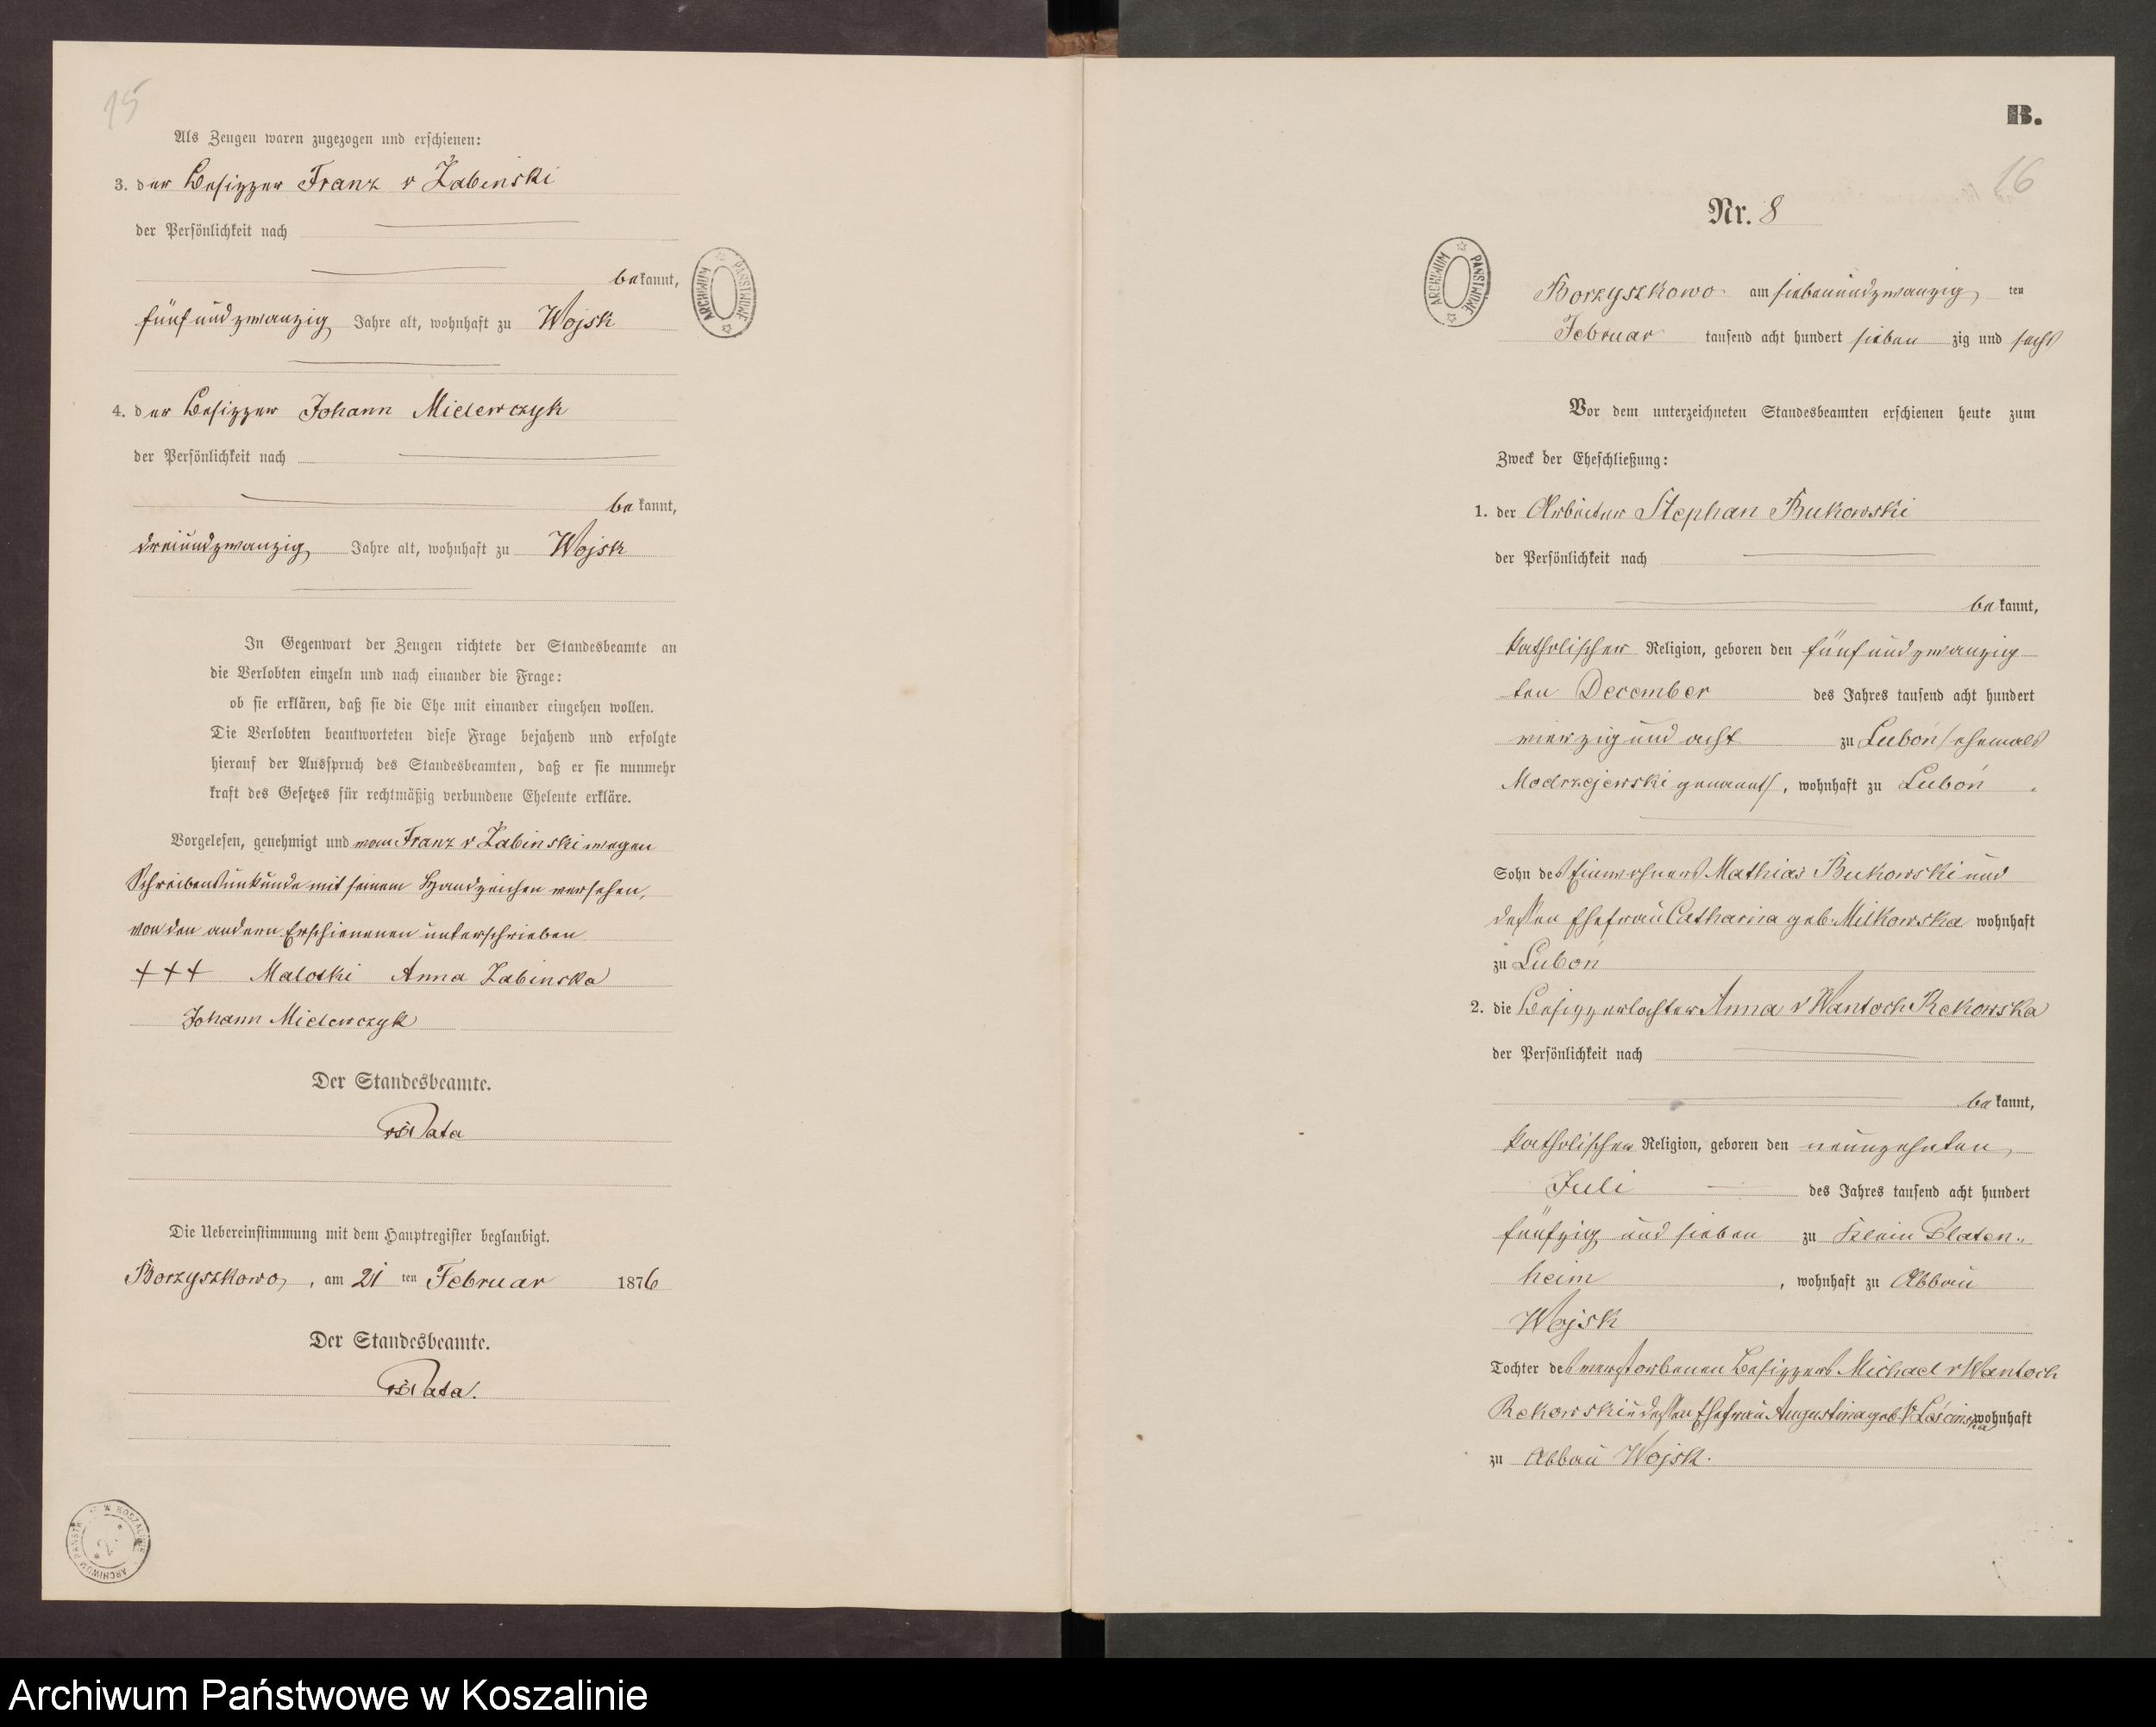 15
Als Zeugen waren zugezogen und erschienen:
3. der Besitzer Franz v Żabinski
der Persönlichkeit nach
bekannt,
fünfundzwanzig Jahre alt, wohnhaft zu Wojsk
4. der Besitzer Johann Mielewczyk
der Persönlichkeit nach
bekannt,
dreiundzwanzig Jahre alt, wohnhaft zu Wojsk
In Gegenwart der Zeugen richtete der Standesbeamte an
die Verlobten einzeln und nach einander die Frage:
ob sie erklären, daß sie die Ehe mit einander eingehen wollen.
Die Verlobten beantworteten diese Frage bejahend und erfolgte
hierauf der Ausspruch des Standesbeamten, daß er sie nunmehr
kraft des Gesetzes für rechtmäßig verbundene Eheleute erkläre.
Vorgelesen, genehmigt und von Franz v Żabinski wegen
Schreibensunkunde mit seinem Handzeichen versehen,
von den andern Erschienenen unterschrieben
+++ Maloski Anna Zabinska
Johann Mielewczyk
Der Standesbeamte.
Die Uebereinstimmung mit dem Hauptregister beglaubigt.
Borzyszkowo, am 21 ten Februar 1876
Der Standesbeamte.
ARCHIWUM PAŃSTWOWE
ARCHIWUM PAŃSTW. W KOSZALINIE
2
B.
16
Nr. 8
ARCHIWUM PAŃSTWOWE
Borzyszkowo am siebenundzwanzig ten
Februar tausend acht hundert sieben zig und sechs
Vor dem unterzeichneten Standesbeamten erschienen heute zum
Zweck der Eheschließung:
1. der Arbeiter Stephan Bukowski
der Persönlichkeit nach
bekannt,
katholischer Religion, geboren den fünfundzwanzig
ten December des Jahres tausend acht hundert
vierzig und acht zu Luboń /ehemals
Modrzejewski genannt/, wohnhaft zu Luboń
Sohn des Einwohners Mathias Bukowski und
dessen Ehefrau Catharina geb. Milkowska wohnhaft
zu Luboń
2. die Besitzertochter Anna v Wantoch Rekowska
der Persönlichkeit nach
bekannt,
katholischer Religion, geboren den neunzehnten
Juli des Jahres tausend acht hundert
fünfzig und sieben zu Klein Platen„
heim, wohnhaft zu Abbau
Wojsk
Tochter des verstorbenen Besitzers Michael v Wantoch
Rekowski u dessen Ehefrau Augustina geb. wohnhaft
zu Abbau Wojsk.
Archiwum Państwowe w Koszalinie